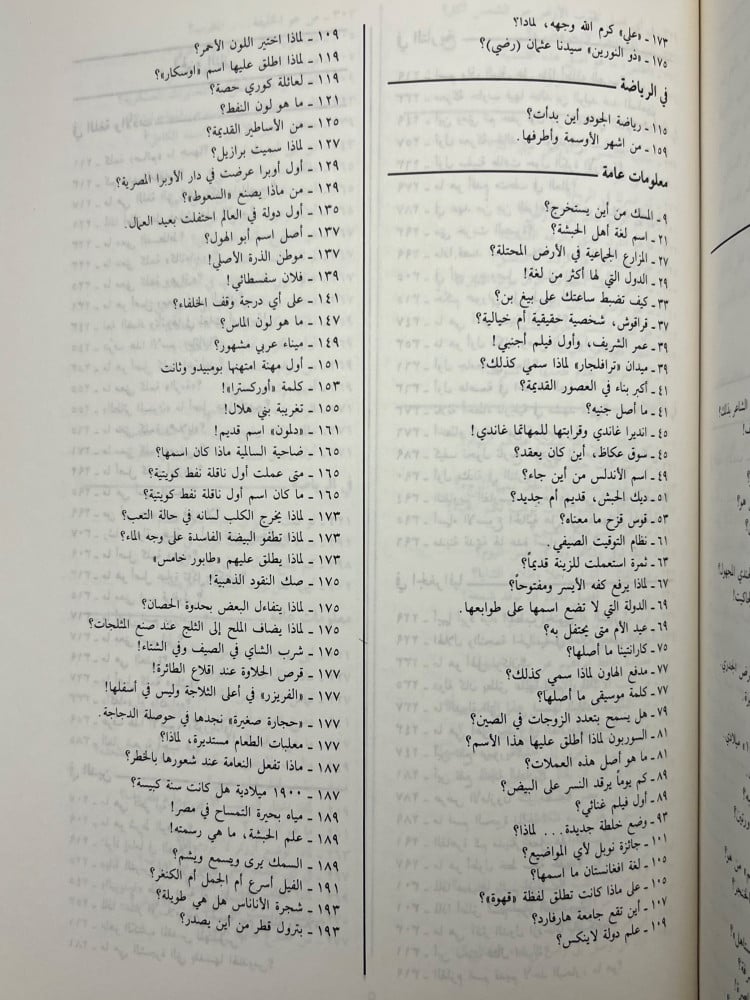 ١٧٣ ـ «علي» كرم الله وجهه، لماذا؟
١٧٥ ـ «ذو النورين» سيدنا عثمان (رضي)؟
في الرياضة
١١٥ ـ رياضة الجودو أين بدأت؟
١٥٩ ـ من اشهر الأوسمة وأطرفها.
معلومات عامة
٩ ـ المسك من أين يستخرج؟
٢١ ـ اسم لغة أهل الحبشة؟
٢٧ ـ المزارع الجماعية في الأرض المحتلة؟
٢٩ ـ الدول التي لها أكثر من لغة!
٣٣ ـ كيف تضبط ساعتك على بيغ بن؟
٣٧ ـ قراقوش، شخصية حقيقية أم خيالية؟
٣٩ ـ عمر الشريف، وأول فيلم أجنبي!
٣٩ ـ ميدان «ترافلجار» لماذا سمي كذلك؟
٤١ ـ أكبر بناء في العصور القديمة؟
٤١ ـ ما أصل جنيه؟
٤٥ ـ انديرا غاندي وقرابتها للمهاتما غاندي!
٤٥ ـ سوق عكاظ، أين كان يعقد؟
٤٩ ـ اسم الأندلس من أين جاء؟
٥١ ـ ديك الحبش، قديم أم جديد؟
٥٣ ـ قوس قزح ما معناه؟
٦١ ـ نظام التوقيت الصيفي.
٦٣ ـ ثمرة استعملت للزينة قديماً؟
٦٧ ـ لماذا يرفع كفه الأيسر ومفتوحاً؟
٦٩ ـ الدولة التي لا تضع اسمها على طوابعها.
٦٩ ـ عيد الأم متى يحتفل به؟
٧٥ ـ كارانتينا ما أصلها؟
٧٧ ـ مدفع الهاون لماذا سمي كذلك؟
٧٧ ـ كلمة موسيقى ما أصلها؟
٧٩ ـ هل يسمح بتعدد الزوجات في الصين؟
٨١ ـ السوربون لماذا أطلق عليها هذا الأسم؟
٨١ ـ ما هو أصل هذه العملات؟
٨٩ ـ كم يوماً يرقد النسر على البيض؟
٨٩ ـ أول فيلم غنائي؟
٩٣ ـ وضع خلطة جديدة... لماذا؟
١٠١ ـ جائزة نوبل لأي المواضيع؟
١٠٥ ـ لغة افغانستان ما اسمها؟
١٠٥ ـ على ماذا كانت تطلق لفظة «قهوة»؟
١٠٧ ـ أين تقع جامعة هارفارد؟
١٠٩ ـ علم دولة لاينكس؟
١٠٩ ـ لماذا اختير اللون الأحمر؟
١١٩ ـ لماذا اطلق عليها اسم «اوسكار»؟
١١٩ ـ لعائلة كوري حصة؟
١٢١ ـ ما هو لون النفط؟
١٢٥ ـ من الأساطير القديمة؟
١٢٧ ـ لماذا سميت برازيل؟
١٢٩ ـ أول أوبرا عرضت في دار الأوبرا المصرية؟
١٢٩ ـ من ماذا يصنع «السعوط»؟
١٣٥ ـ أول دولة في العالم احتفلت بعيد العمال.
١٣٧ ـ أصل اسم أبو الهول؟
١٣٧ ـ موطن الذرة الأصلي!
١٣٩ ـ فلان سفسطائي!
١٤١ ـ على أي درجة وقف الخلفاء؟
١٤٧ ـ ما هو لون الماس؟
١٤٩ ـ ميناء عربي مشهور؟
١٥١ ـ أول مهنة امتهنها بومبيدو وثانت
١٥٣ ـ كلمة «أوركسترا»!
١٥٥ ـ تغريبة بني هلال!
١٦١ ـ «دلمون» اسم قديم!
١٦٥ ـ ضاحية السالمية ماذا كان اسمها؟
١٦٥ ـ متى عملت أول ناقلة نفط كويتية؟
١٦٥ ـ ما كان اسم أول ناقلة نفط كويتية؟
١٧٣ ـ لماذا يخرج الكلب لسانه في حالة التعب؟
١٧٣ ـ لماذا تطفو البيضة الفاسدة على وجه الماء؟
١٧٣ ـ لماذا يطلق عليهم «طابور خامس»؟
١٧٥ ـ صك النقود الذهبية!
١٧٥ ـ لماذا يتفاءل البعض بحدوة الحصان؟
١٧٥ ـ لماذا يضاف الملح إلى الثلج عند صنع المثلجات؟
١٧٥ ـ شرب الشاي في الصيف وفي الشتاء!
١٧٧ ـ قرص الحلاوة عند اقلاع الطائرة!
١٧٧ ـ «الفريزر» في أعلى الثلاجة وليس في أسفلها!
١٧٧ ـ «حجارة صغيرة» نجدها في حوصلة الدجاجة.
١٧٧ ـ معلبات الطعام مستديرة، لماذا؟
١٨٧ ـ ماذا تفعل النعامة عند شعورها بالخطر؟
١٨٧ ـ ١٩٠٠ ميلادية هل كانت سنة كبيسة؟
١٨٩ ـ مياه بحيرة التمساح في مصر!
١٨٩ ـ علم الحبشة، ما هي رسمته!
١٨٩ ـ السمك يرى ويسمع ويشم؟
١٩١ ـ الفيل أسرع أم الجمل أم الكنغر؟
١٩٣ ـ شجرة الأناناس هل هي طويلة؟
١٩٣ ـ بترول قطر من أين يصدر؟